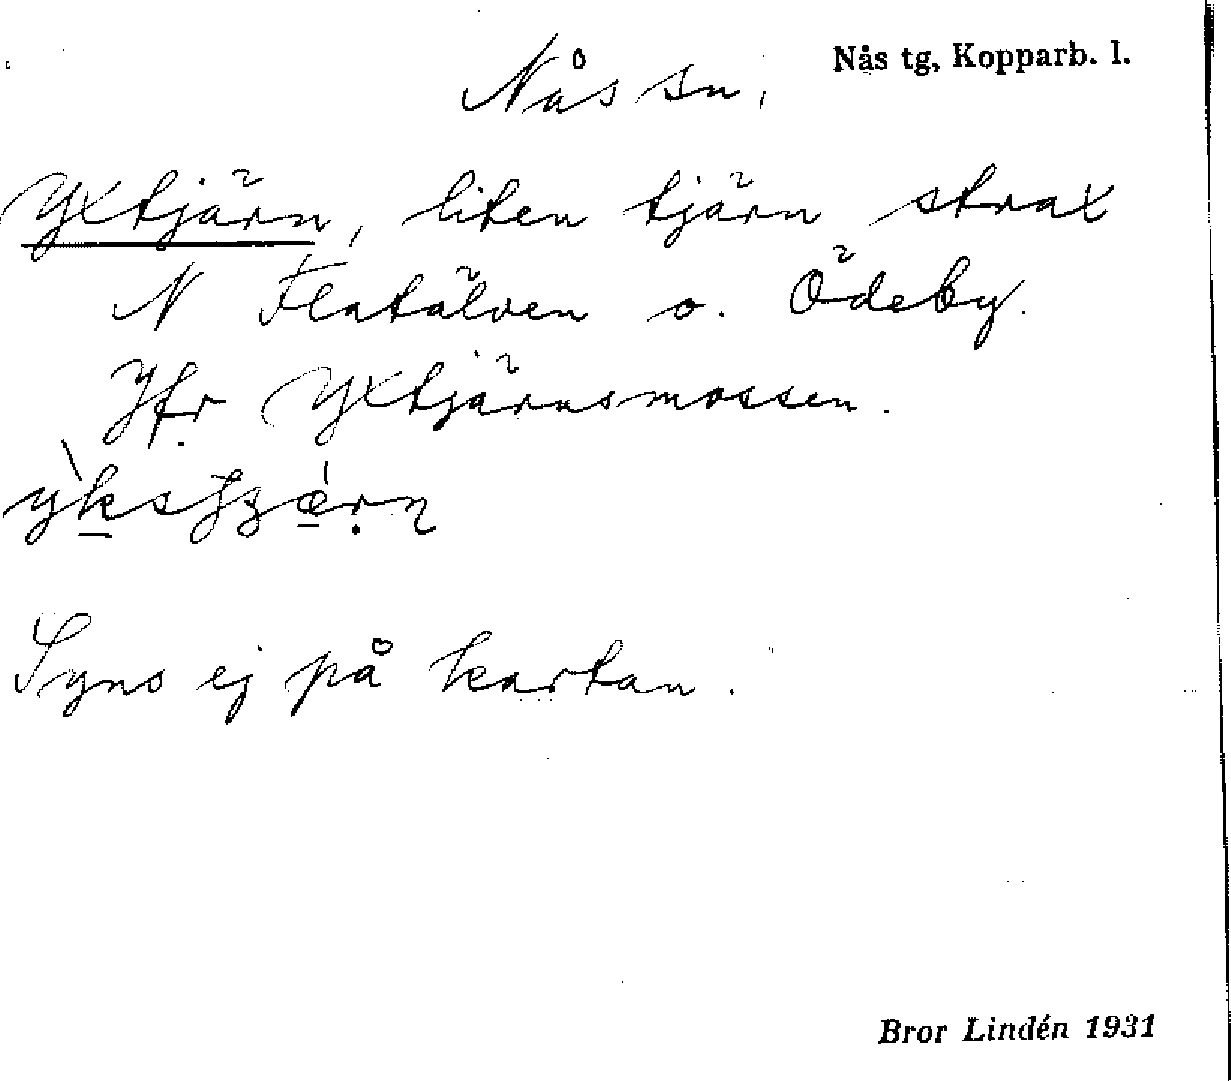 Nås sn,
Nås tg, Kopparb. l.
Yxtjärn, liten tjärn strax
N Flatälven o. Ödeby.
Jfr Yxtjärnsmossen.
Syns ej på kartan.
Bror Lindén 1931